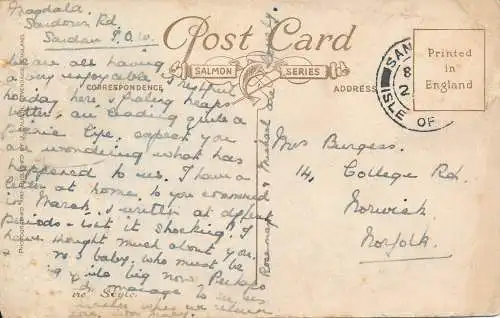 Magdala.
Sandown Rd.
Sandown I.O.W.
Post Card
SALMON SERIES
CORRESPONDENCE
ADDRESS
Printed
in
England
SAN
8
2
ISLE OF
We are all having a
very enjoyable & restful
holiday here, & feeling heaps
better, are leading quite a
Picnic life. expect you
are wondering what has
happened to us. I have a
letter at home, to you commenced
in March, & written at different
periods - isn't it shocking? I
have thought much about you,
baby, who must be
quite big now. Perhaps
manage to see us
when we return
Rosemary & Michael are
Mrs Burgess.
14, College Rd.
Norwich.
Norfolk.